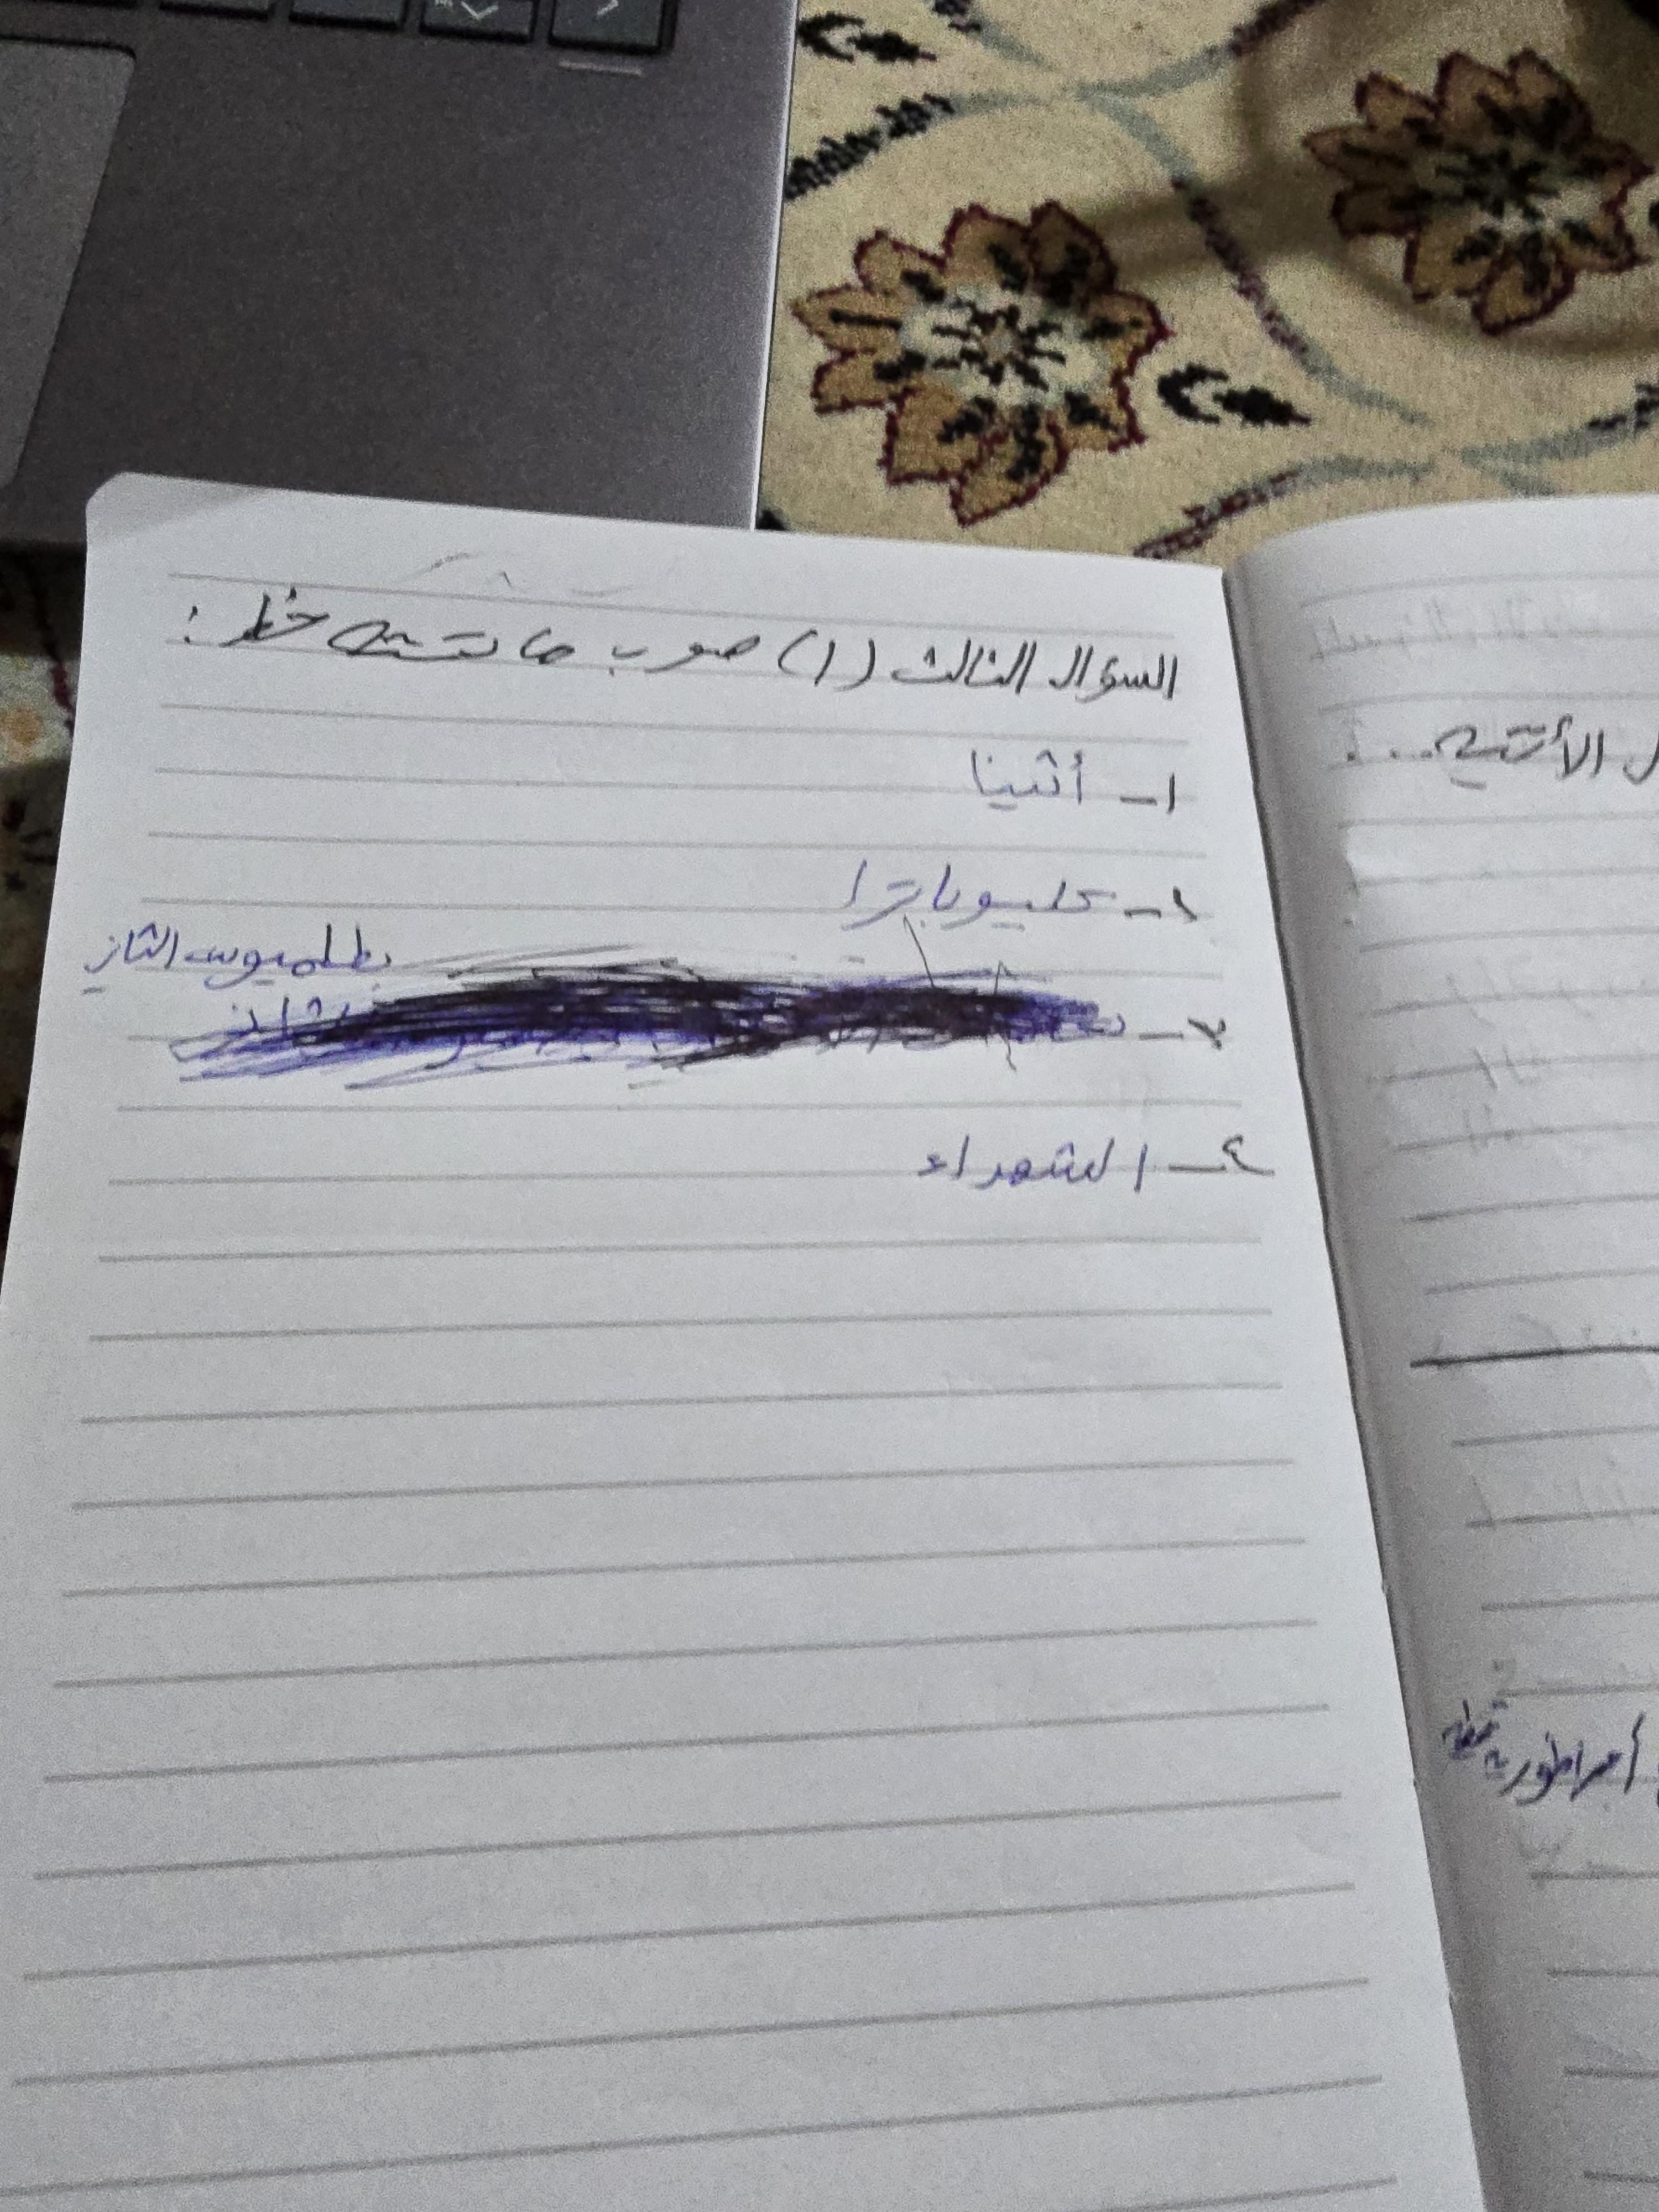 السؤال الثالث (١) صوب ما تحته خط :
١- أثينا
٢- كليوباترا
بطلميوس الثاني
٣-
٤- الشعراء
الأتية...:
أمبراطورية